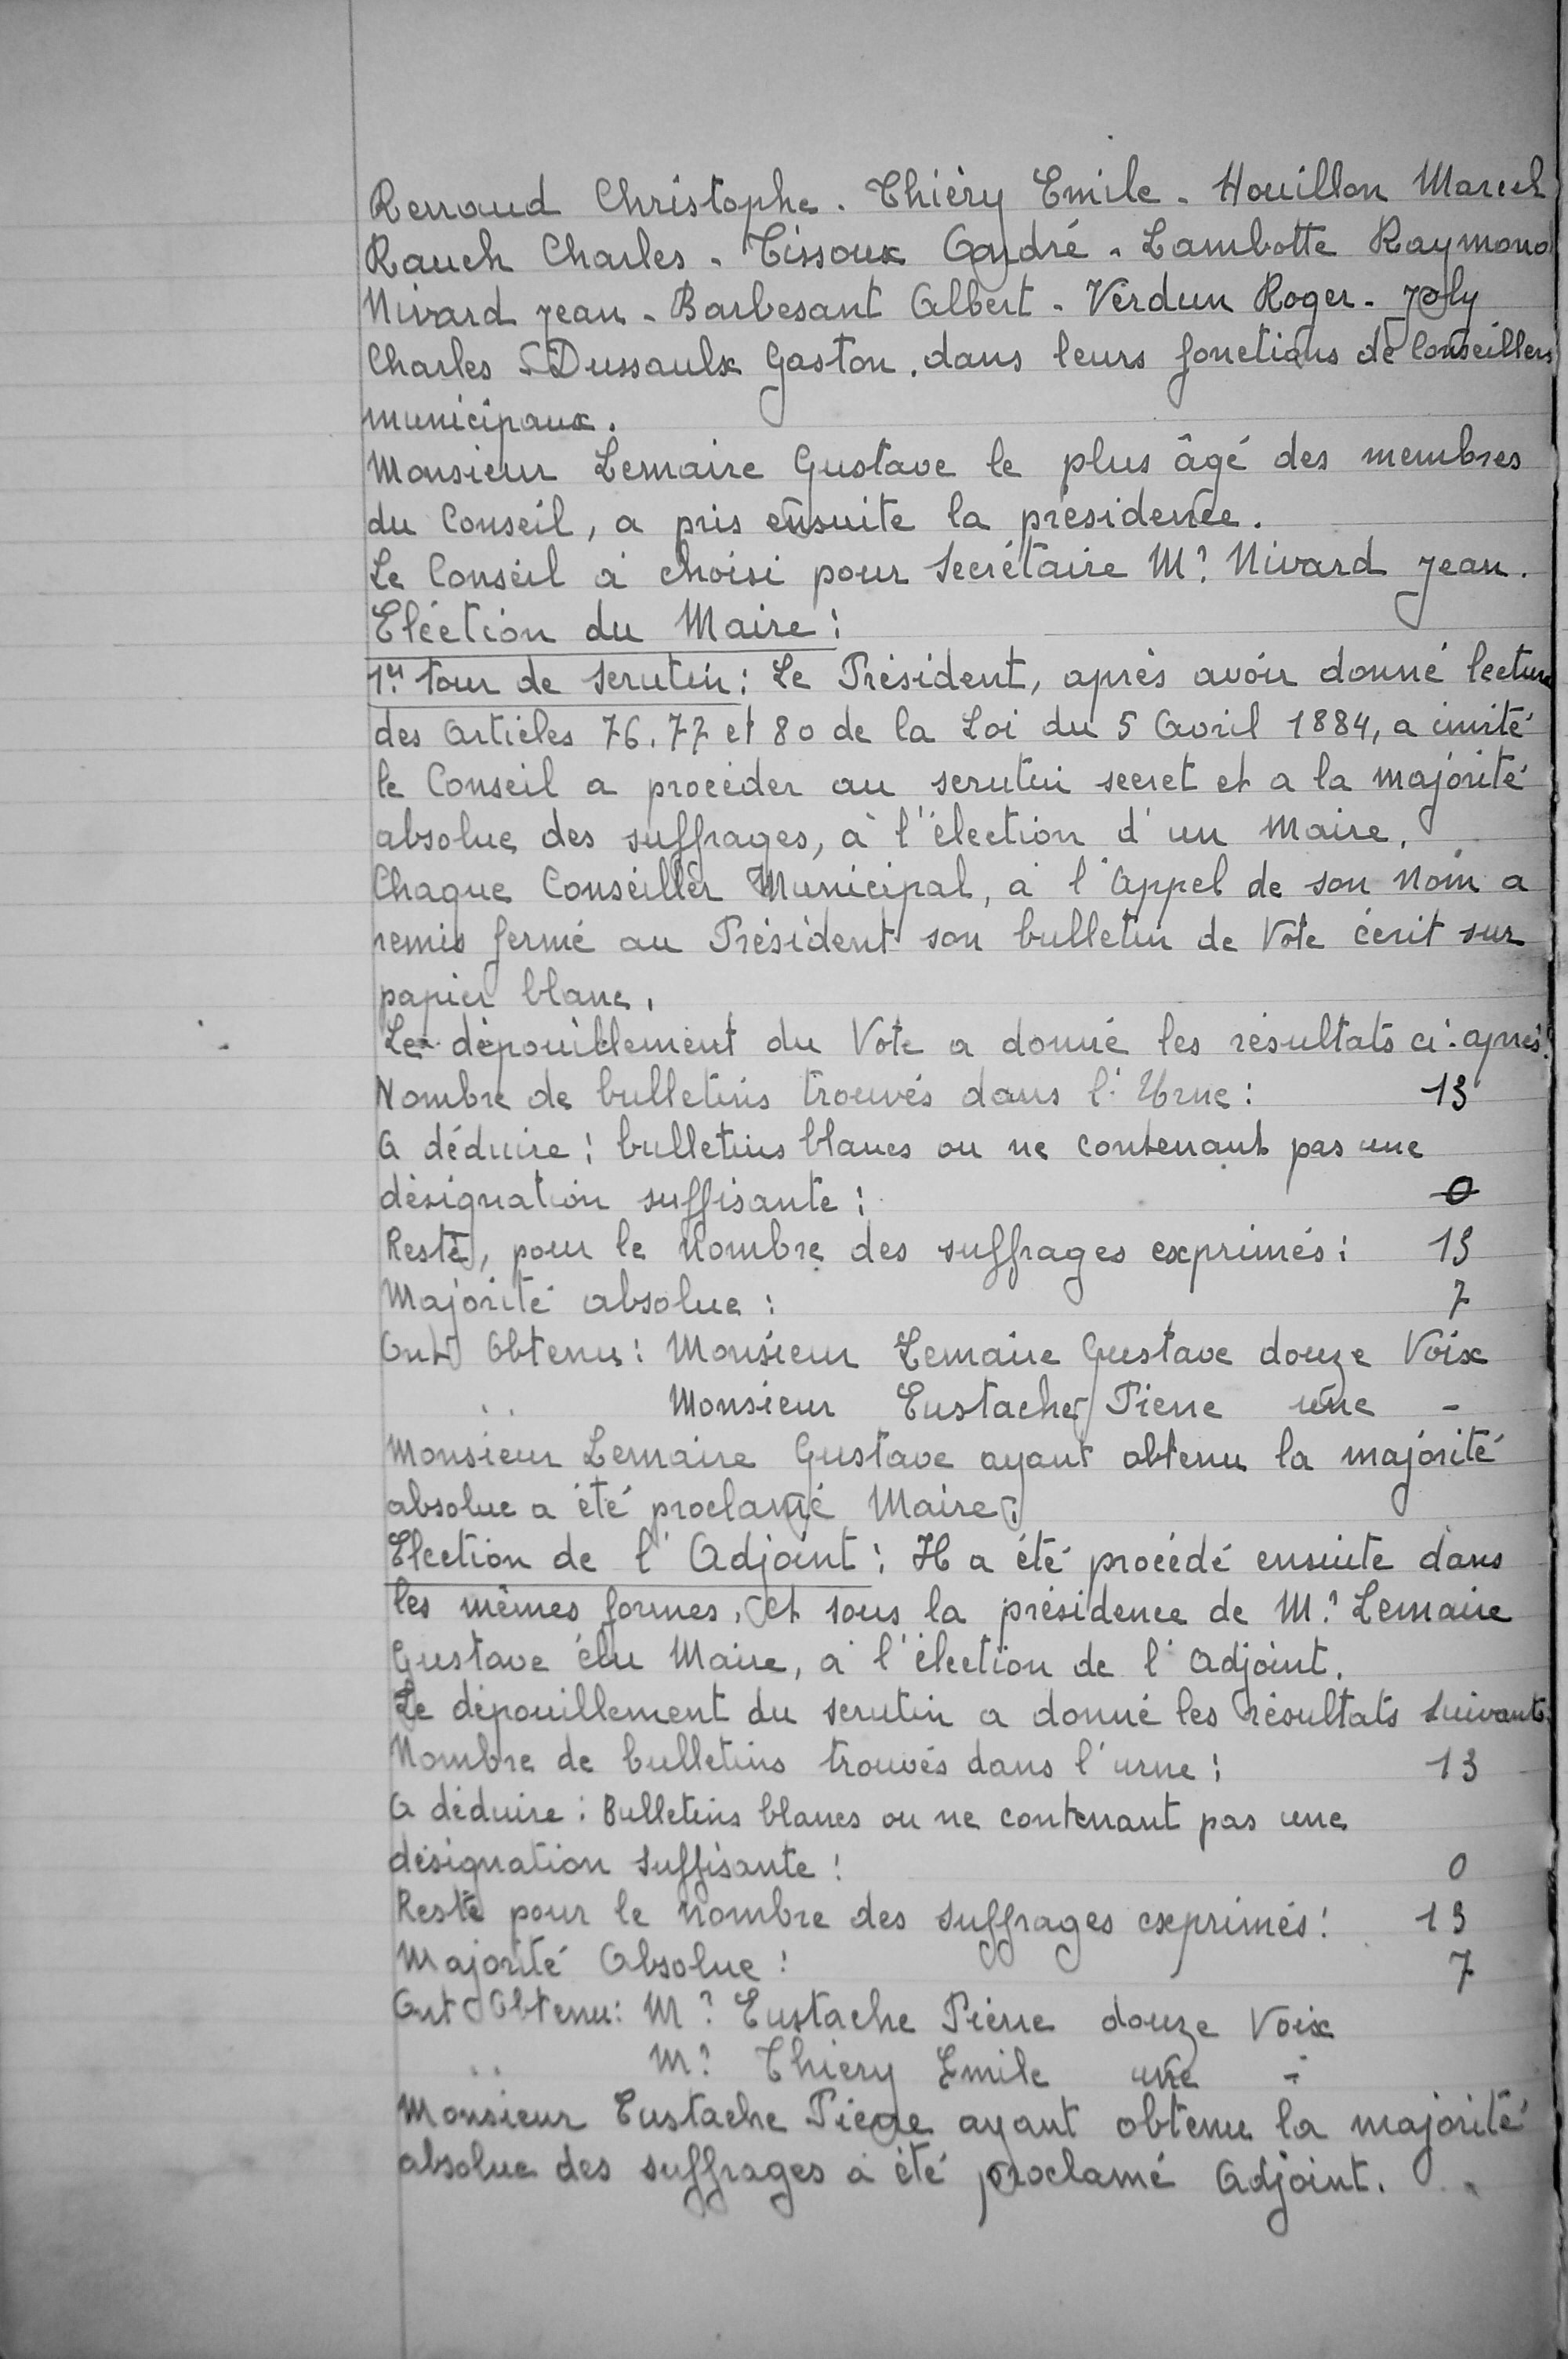 Renaud Christophe. Thiéry Emile. Houillon Marcel
Rauch Charles. Tissoux André. Lambotte Raymond
Nivard Jean. Barbesant Albert. Verdun Roger. Joly
Charles. Dussaulx Gaston. dans leurs fonctions de Conseillers
municipaux.
Monsieur Lemaire Gustave le plus âgé des membres
du Conseil, a pris ensuite la présidence.
Le Conseil a choisi pour Secrétaire Mr Nivard Jean.
Eléction du Maire :
1er tour de scrutin : Le Président, après avoir donné lecture
des Articles 76. 77 et 80 de la Loi du 5 Avril 1884, a invité
le Conseil a procéder au scrutin secret et a la majorité
absolue des suffrages, à l'élection d'un Maire.
Chaque Conseiller Municipal, à l'Appel de son Nom a
remis fermé au Président son bulletin de Vote écrit sur
papier blanc.
Le dépouillement du Vote a donné les résultats ci-après :
Nombre de bulletins trouvés dans l'Urne : 13
A déduire : bulletins blancs ou ne contenant pas une
désignation suffisante : 0
Reste, pour le Nombre des suffrages exprimés : 13
Majorité absolue : 7
Ont Obtenu : Monsieur Lemaire Gustave douze Voix
.. Monsieur Eustache Pierre une -
Monsieur Lemaire Gustave ayant obtenu la majorité
absolue a été proclamé Maire.
Election de l'Adjoint : Il a été procédé ensuite dans
les mêmes formes, et sous la présidence de Mr Lemaire
Gustave élu Maire, à l'élection de l'Adjoint.
Le dépouillement du scrutin a donné les résultats suivants
Nombre de bulletins trouvés dans l'urne : 13
A déduire : Bulletins blancs ou ne contenant pas une
désignation suffisante : 0
Reste pour le Nombre des suffrages exprimés : 13
Majorité Absolue : 7
Ont Obtenu : Mr Eustache Pierre douze Voix
.. Mr Thiery Emile une -
Monsieur Eustache Pierre ayant obtenu la majorité
absolue des suffrages a été proclamé Adjoint.